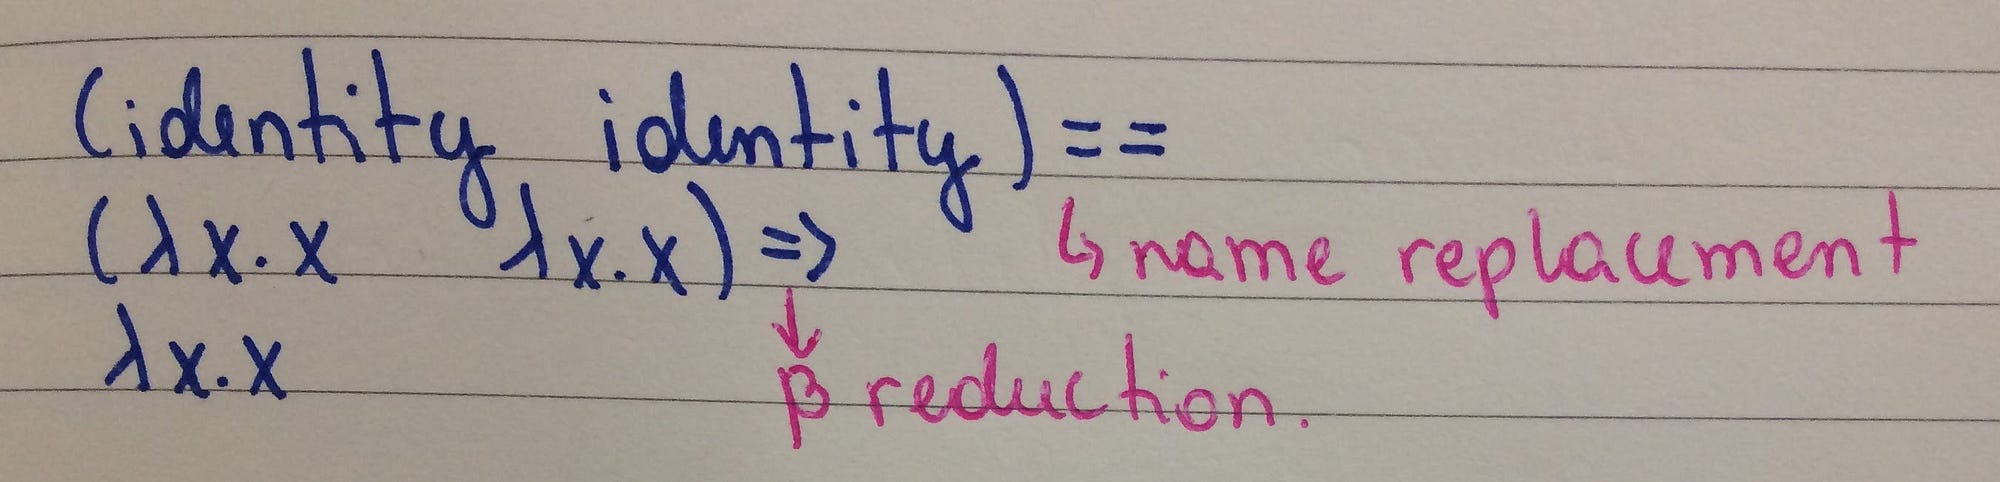 (identity identity) ==
(λx.x λx.x) => ↳ name replacement
λx.x ↓
β reduction.